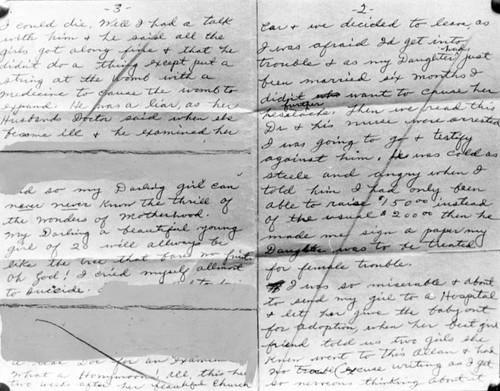 - 3 -
I could die. Well I had a talk
with him & he said all the
girls got along fine & that he
didn't do a thing except put a
string at the womb with a
medicine to cause the womb to
expand. He was a liar, as her
Husbands Doctor said when she
became ill & he examined her
and so my Darling girl can
never never know the thrill of
the wonders of Motherhood.
My Darling a beautiful young
girl of 20 will allways be
like the tree that bore no fruit
Oh God! I cried myself allmost
to suicide.
a dear Doc for an examen
What a Honeymoon! ill, this her
two weeks after her beautiful Church
- 2 -
Car & we decided to leave, as
I was afraid I'd get into
trouble & as my Daughter had just
been married six months I
didn't want to cause her
further heartache. Then we read this
Dr & his nurse were arrested
I was going to go & testify
against him, he was cold as
steele and angry when I
told him I had only been
able to raise $150.00 instead
of the usual $200.00 then he
made me sign a paper my
Daughter was to be treated
for female trouble.
I was so miserable & about
to send my girl to a Hospital
& let her give the baby out
for adoption, when her best girl
friend told us two girls she
knew went to this Allan & had
no trouble excuse writing as I get
so nervous thinking about it